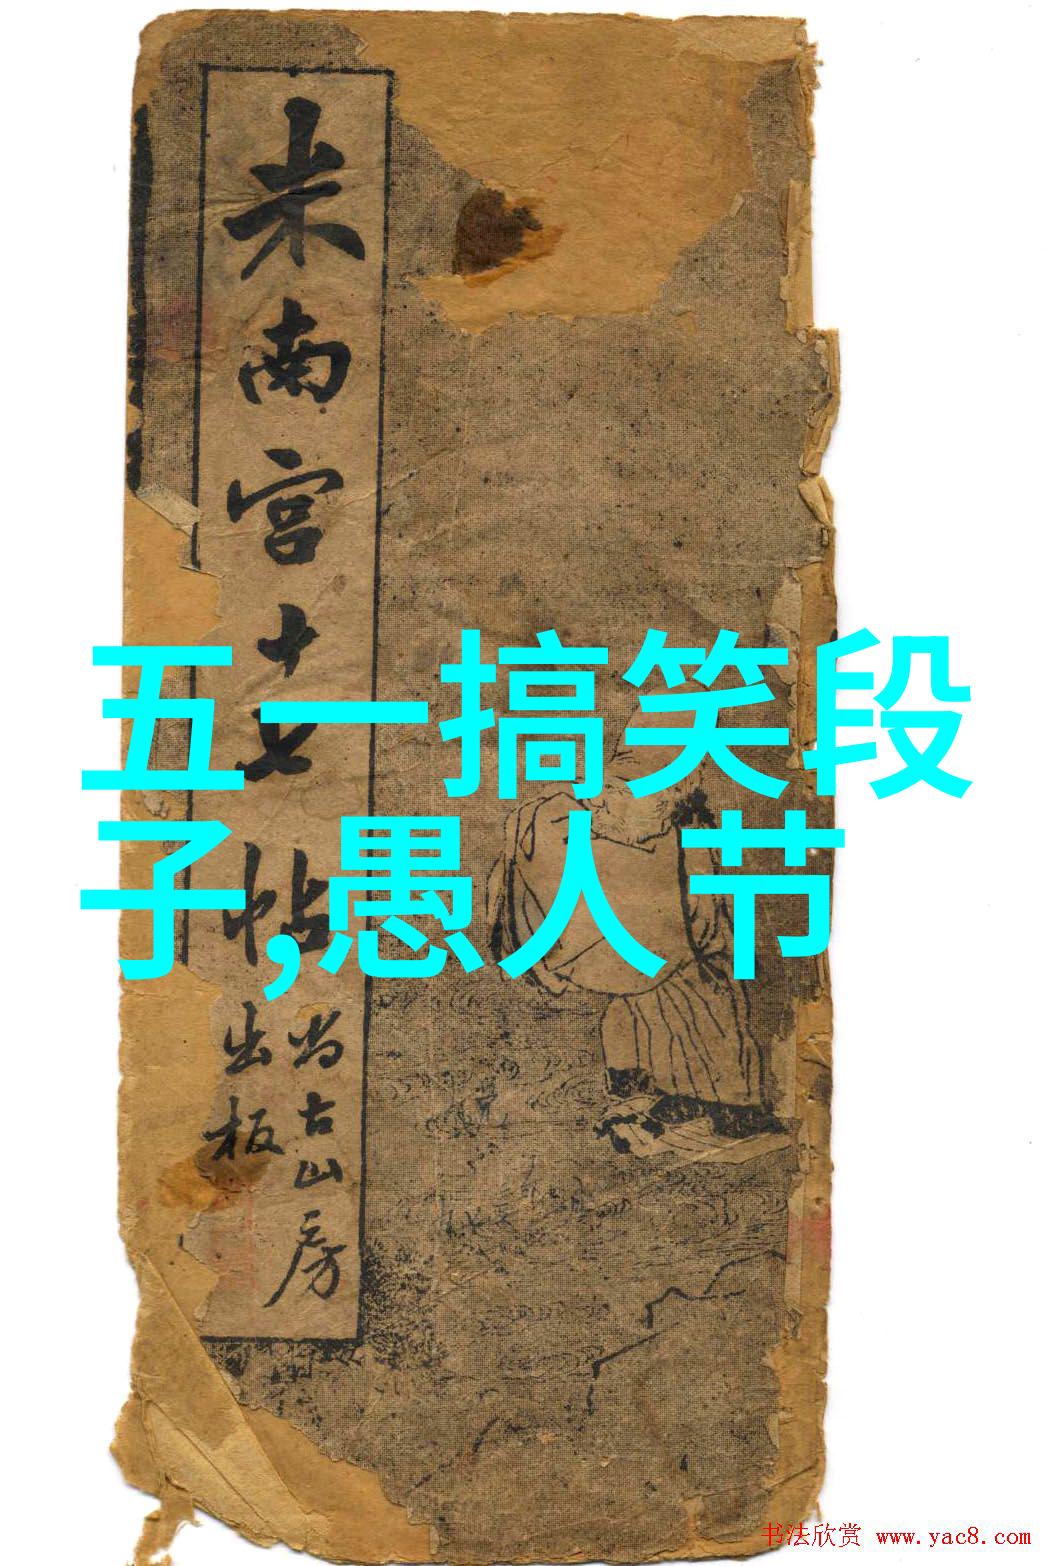 米南宫十七帖
尚古山房
出板
五一搞笑段
子,愚人节
书法欣赏 www.yac8.com